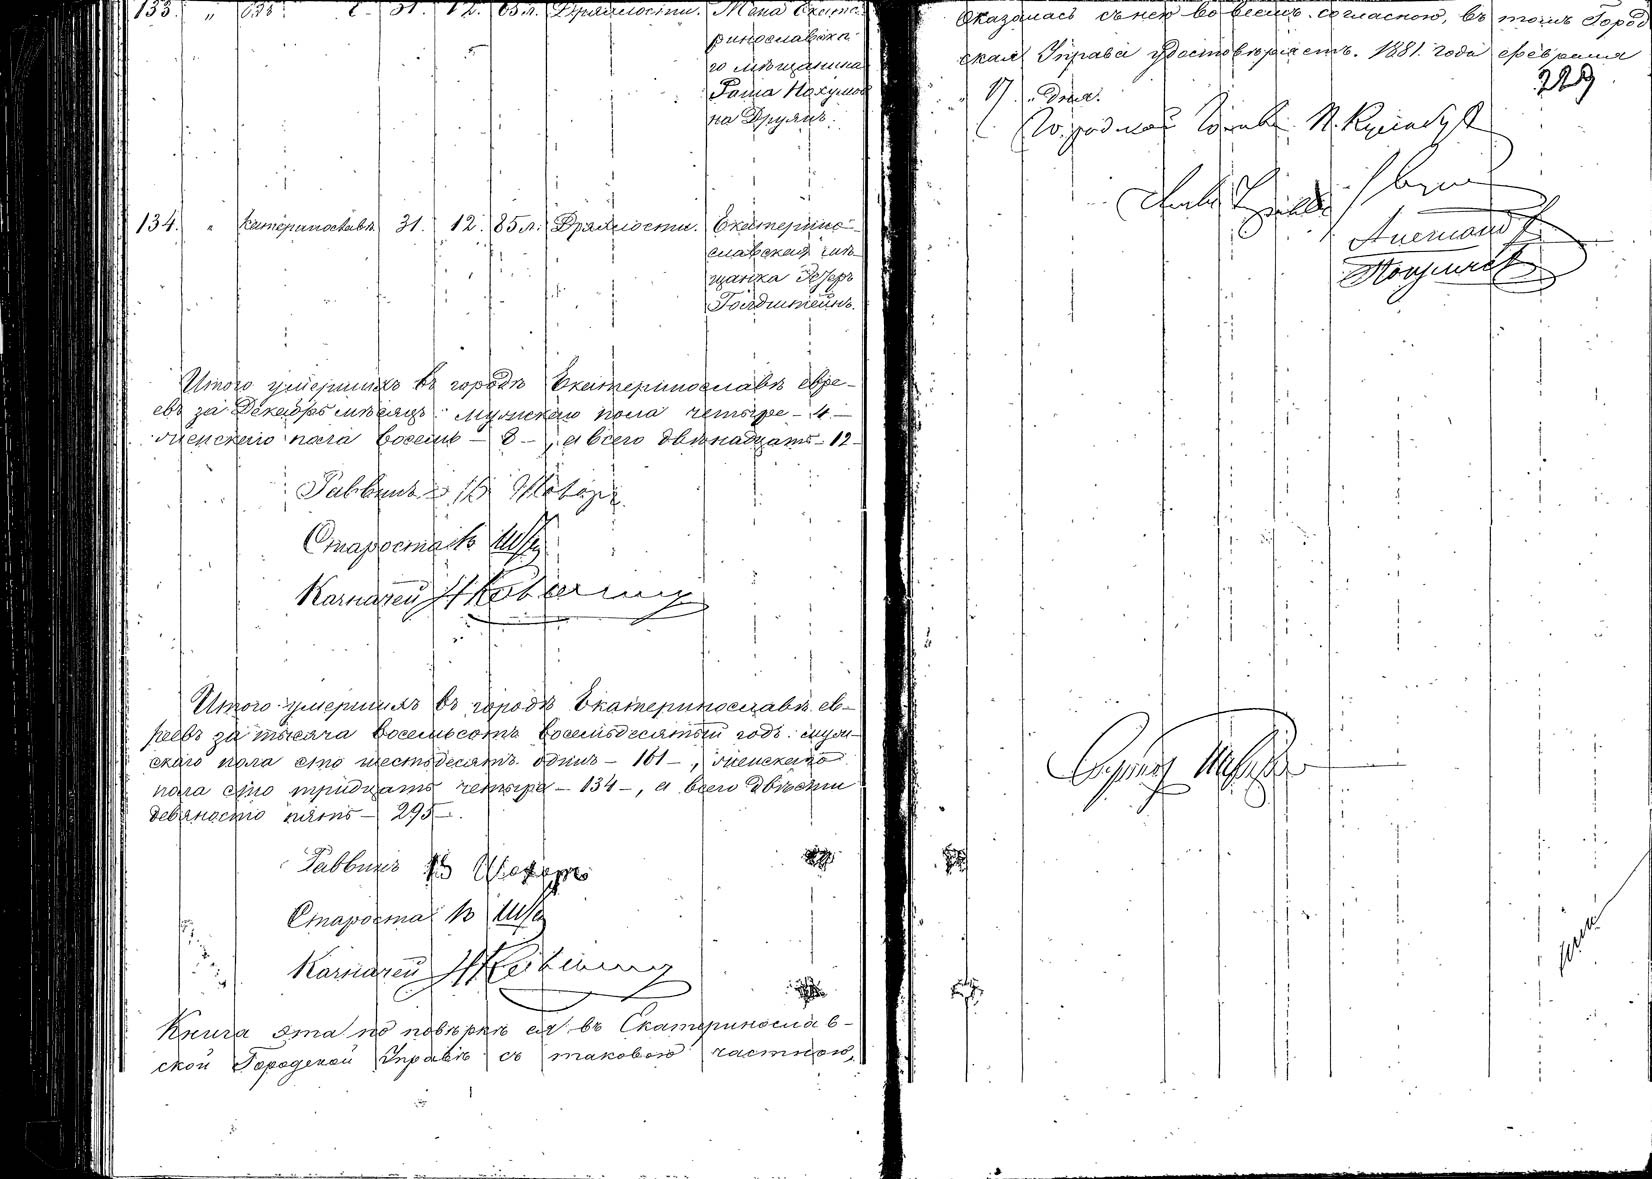 133. " 31. 12. 65 л. Дряхлости. Жена Екате-
ринославска-
го мѣщанина
на Друянъ.
134. " Екатеринославѣ 31. 12. 85 л. Дряхлости. Екатерино-
славская мѣ-
щанка Эсѳирь
Гольдштейнъ.
Итого умершихъ въ городѣ Екатеринославѣ евре-
евъ за Декабрь мѣсяцъ: мужскаго пола четыре – 4 –
женскаго пола восемь – 8 –, а всего двѣнадцать – 12 –
Раввинъ В Шохоръ
Староста В
Казначей
Итого умершихъ въ городѣ Екатеринославѣ ев-
реевъ за тысяча восемьсотъ восемьдесятый годъ: муж-
скаго пола сто шестьдесятъ одинъ – 161 –, женскаго
пола сто тридцать четыре – 134 –, а всего двѣсти
девяносто пять – 295 –.
Раввинъ В Шохоръ
Староста В
Казначей
Книга эта по повѣркѣ ея въ Екатеринослав-
ской Городской Управѣ съ таковою частною,
оказалась съ нею во всемъ согласною, въ томъ Город-
ская Управа удостовѣряетъ. 1881 года февраля
17 дня.
229
Городской Голова П.